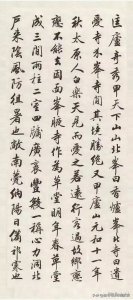 匡廬奇秀甲天下山山北峯曰香爐峯北寺曰遺
愛寺介峯寺間其境勝絕又甲廬山元和十一年
秋太原人白樂天見而愛之若遠行客過故鄉戀
戀不能去因面峯腋寺作為草堂明年春草堂
成三間兩柱二室四牖廣袤豐殺一稱心力洞北
戶來陰風防徂暑也敞南甍納陽日虞祁寒也